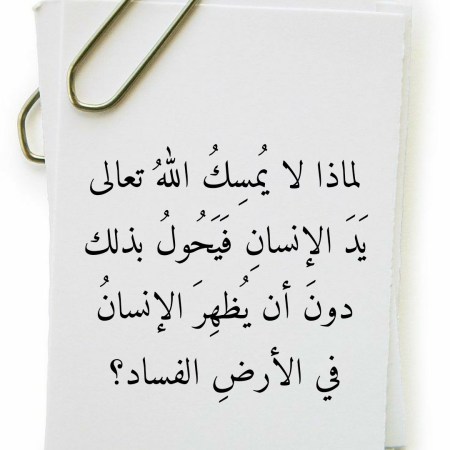 لماذا لا يُمسِكُ اللهُ تعالى
يَدَ الإنسانِ فَيَحُولُ بذلك
دونَ أن يُظهِرَ الإنسانُ
في الأرضِ الفساد؟